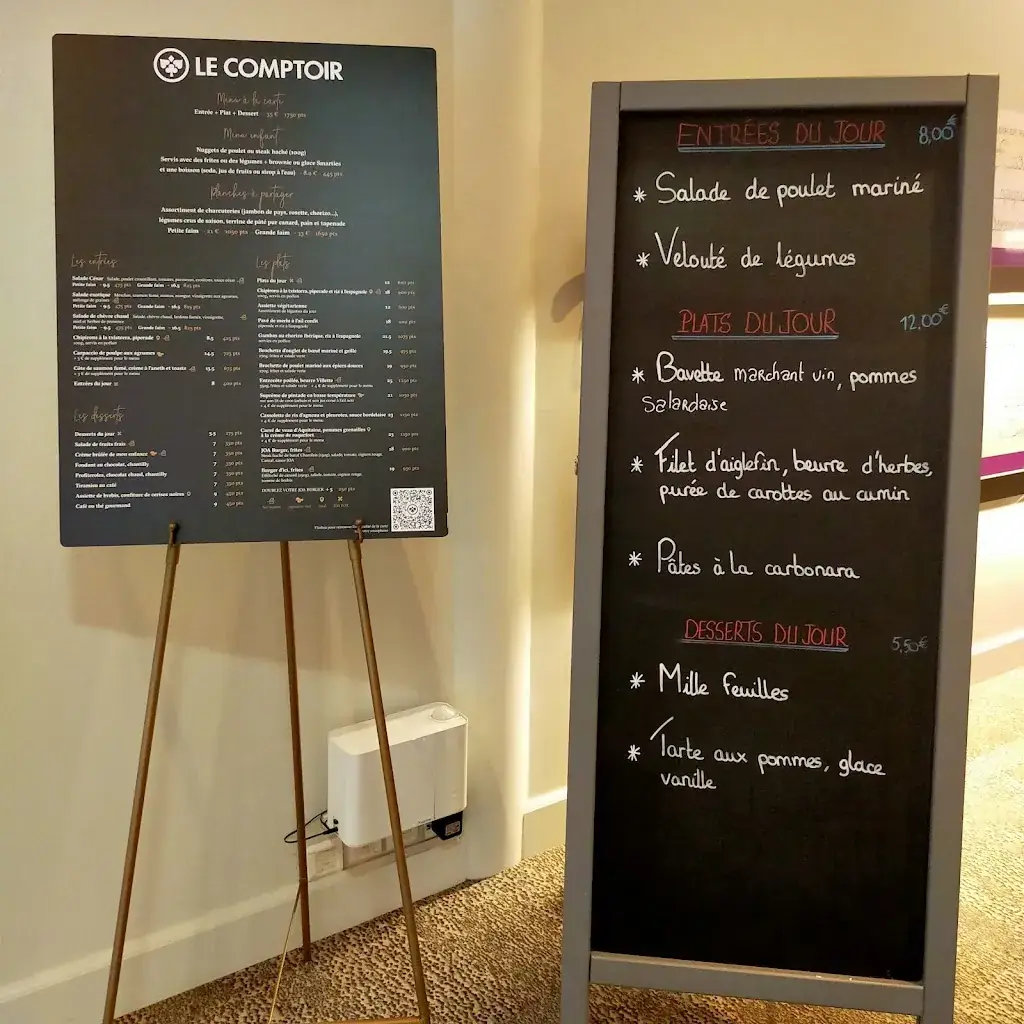 LE COMPTOIR
Menu à la carte
Entrée + Plat + Dessert 35 € 1750 pts
Menu enfant
Nuggets de poulet ou steak haché (100g)
Servis avec des frites ou des légumes + brownie ou glace Smarties
et une boisson (soda, jus de fruits ou sirop à l'eau) 8.9 € 445 pts
Planches à partager
Assortiment de charcuteries (jambon de pays, rosette, chorizo...),
légumes crus de saison, terrine de pâté pur canard, pain et tapenade
Petite faim 21 € 1050 pts Grande faim 33 € 1650 pts
Les entrées
Salade César
Petite faim 9.5 475 pts Grande faim 16.5 825 pts
Salade exotique
Petite faim 9.5 475 pts Grande faim 16.5 825 pts
Salade de chèvre chaud
Petite faim 9.5 475 pts Grande faim 16.5 825 pts
Chipirons à la txistorra, piperade 8.5 425 pts
100g, servis en poêlon
Carpaccio de poulpe aux agrumes 14.5 725 pts
+ 3 € de supplément pour le menu
Côte de saumon fumé, crème à l'aneth et toasts 13.5 675 pts
+ 3 € de supplément pour le menu
Entrées du jour 8 400 pts
Les desserts
Desserts du jour 5.5 275 pts
Salade de fruits frais 7 350 pts
Crème brûlée de mon enfance 7 350 pts
Fondant au chocolat, chantilly 7 350 pts
Profiteroles, chocolat chaud, chantilly 7 350 pts
Tiramisu au café 7 350 pts
Assiette de brebis, confiture de cerises noires 9 450 pts
Café ou thé gourmand 9 450 pts
Les plats
Plats du jour 12 600 pts
Chipirons à la txistorra, piperade et riz à l'espagnole 18 900 pts
Assiette végétarienne
Assortiment de légumes du jour
Pavé de merlu à l'ail confit 18 900 pts
piperade et riz à l'espagnole
Gambas au chorizo ibérique, riz à l'espagnole 21.5 1075 pts
servies en poêlon
Brochette d'onglet de bœuf mariné et grillé 19.5 975 pts
Brochette de poulet mariné aux épices douces 19 950 pts
Entrecôte poêlée, beurre Villette 25 1250 pts
Suprême de pintade en basse température 21 1050 pts
+ 4 € de supplément pour le menu
Cassolette de ris d'agneau et pleurotes, sauce bordelaise 23 1150 pts
+ 4 € de supplément pour le menu
Carré de veau d'Aquitaine, pommes grenailles 23 1150 pts
à la crème de roquefort
+ 4 € de supplément pour le menu
JOA Burger, frites 18 900 pts
Burger d'ici, frites 19 950 pts
DOUBLEZ VOTRE JOA BURGER + 5 250 pts
ENTRÉES DU JOUR 8,00€
* Salade de poulet mariné
* Velouté de légumes
PLATS DU JOUR 12,00€
* Bavette marchant vin, pommes
Salardaise
* Filet d'aiglefin, beurre d'herbes,
purée de carottes au cumin
* Pâtes à la carbonara
DESSERTS DU JOUR 5,50€
* Mille feuilles
* Tarte aux pommes, glace
vanille